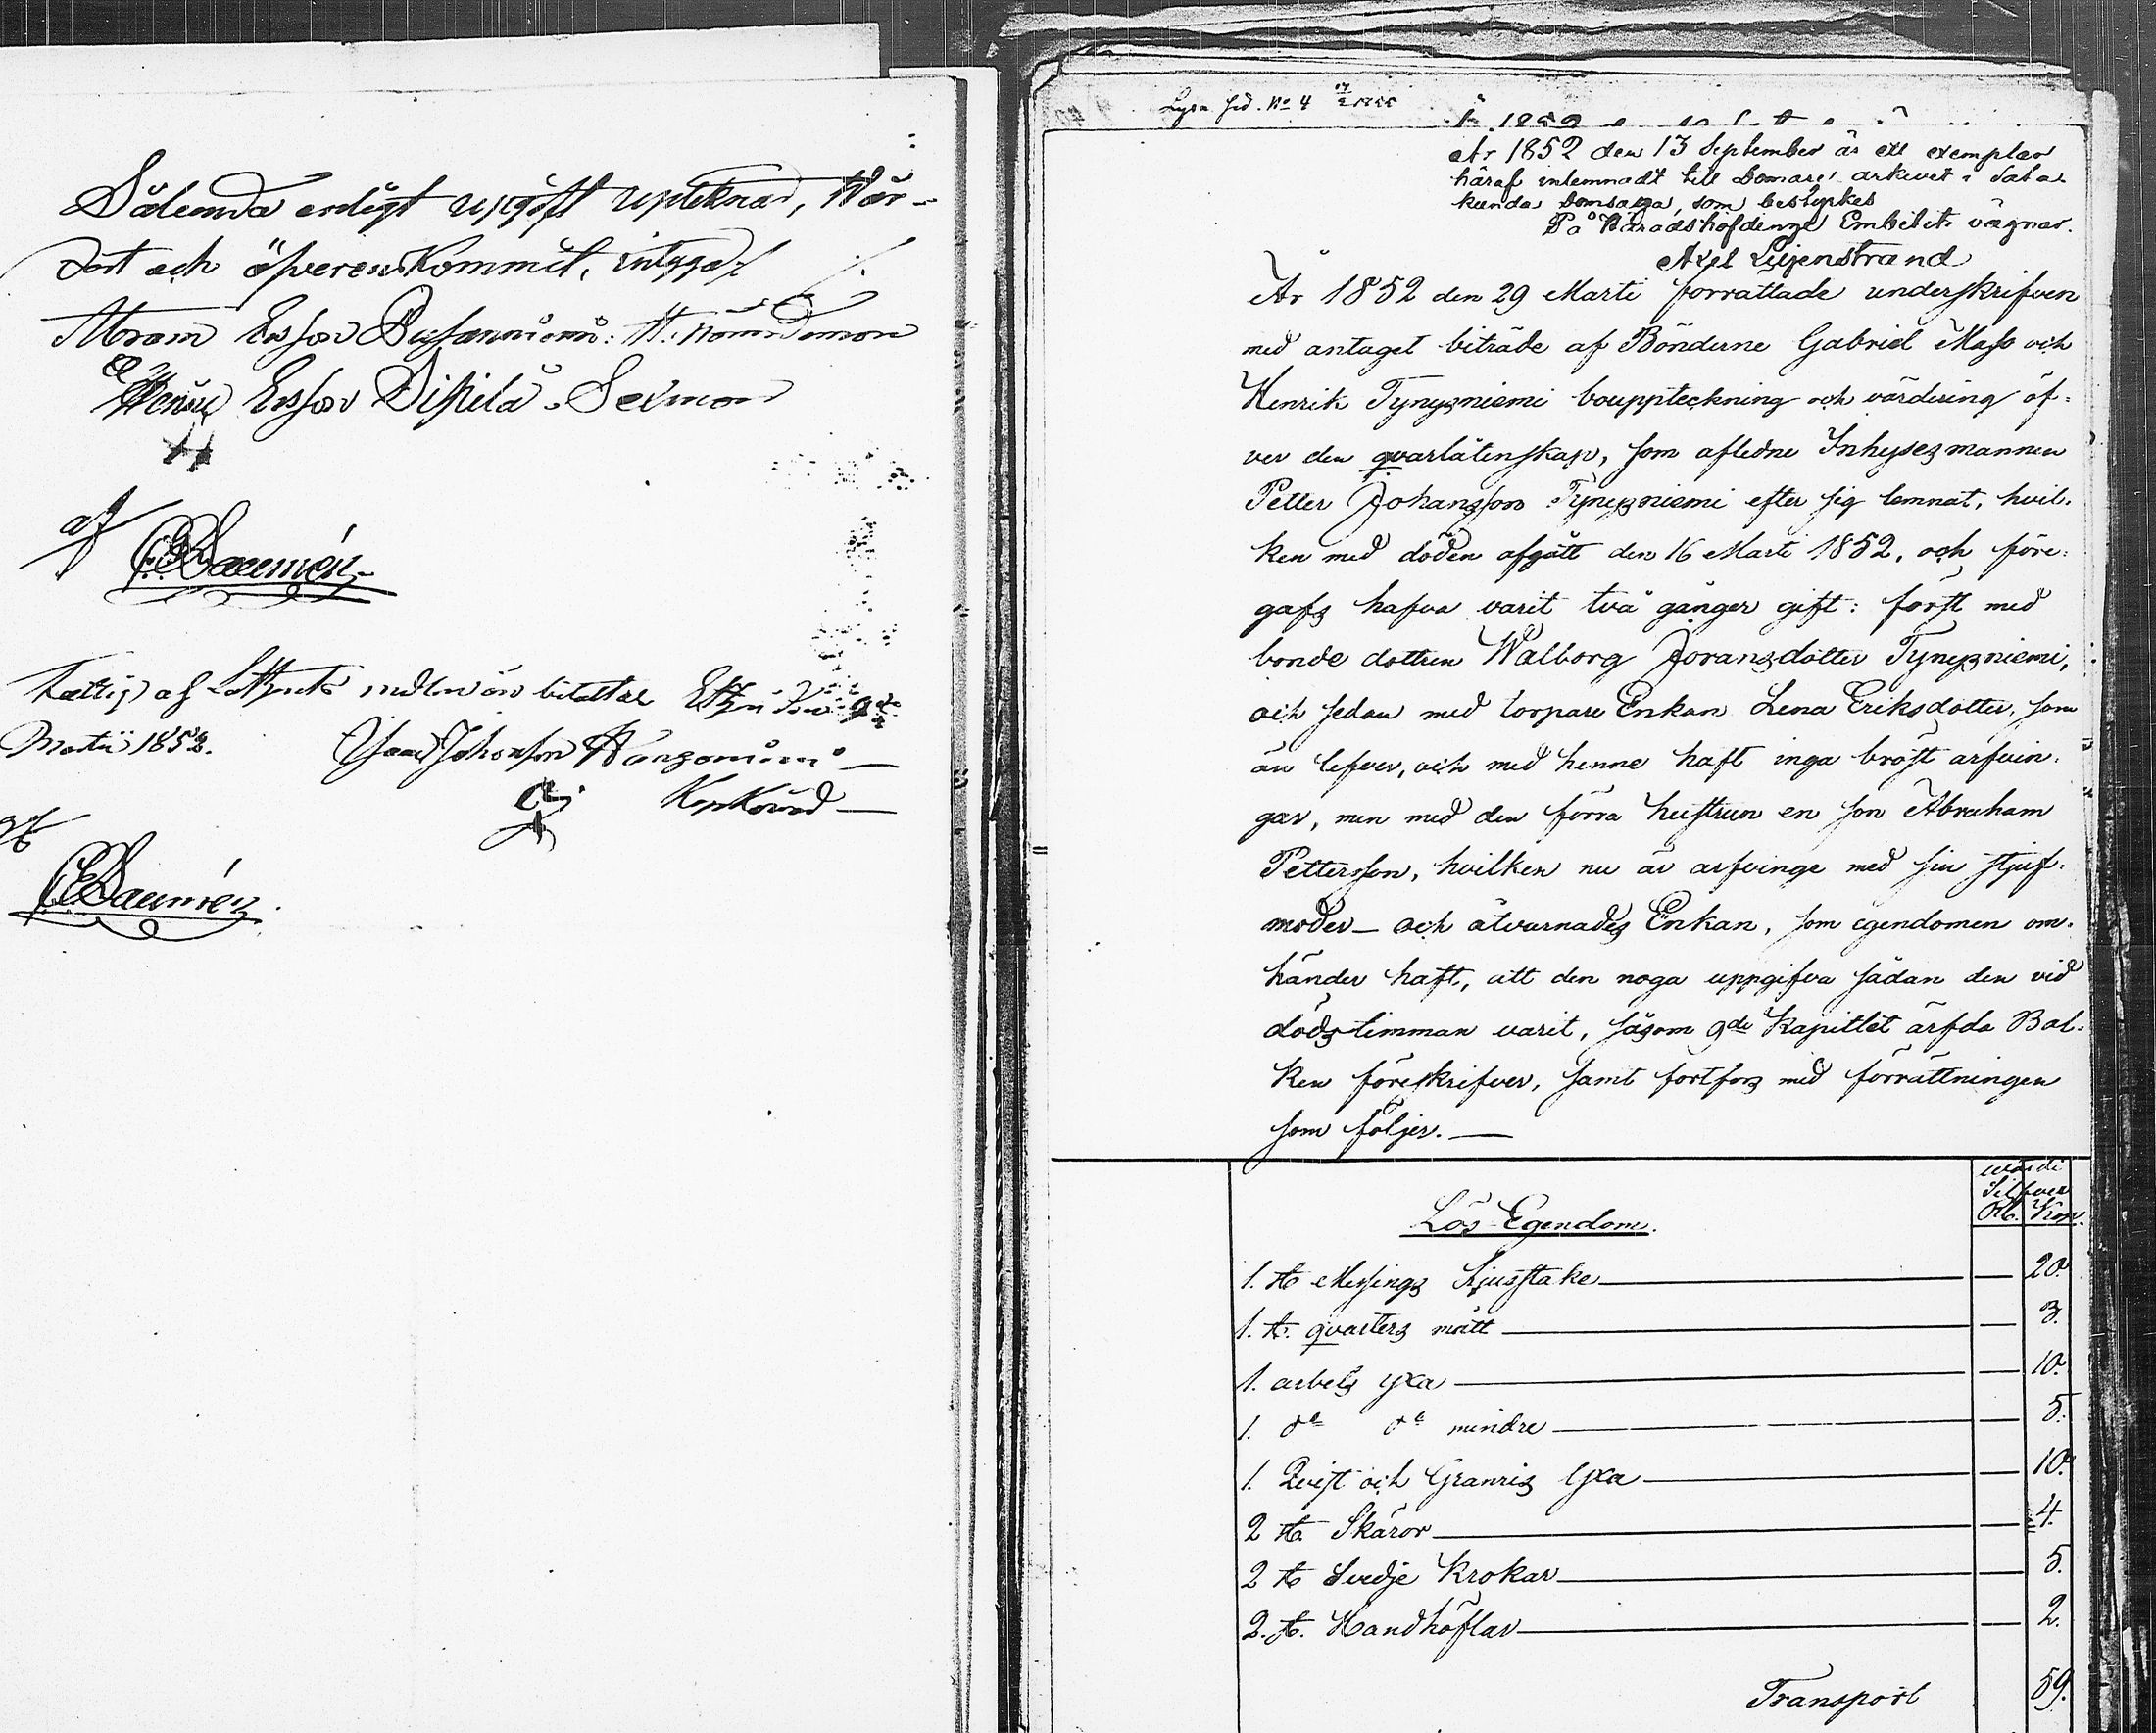 Sålunda enligt upgift upteknad, Wär-
dort och öfverenskommit, intyga
Abram Ersson N: Nämndeman
Ersson Sippilä. Sexman
af
Fattig af medlen än bitaltat
Martii 1852.
Isaac Johansson
af
Lysa No 4
År 1852 den 13 September är ett exemplar
häraf inlemnadt till Domare arkivet i Sata
kunda Domsaga, som bestyrkes
På Häradshöfdinge Embetets vägnar.
Axel Liljenstrand
År 1852 den 29 Marti förrattade underskrifven
med antaget biträde af Bönderne Gabriel Mass och
Henrik Tynyzniemi bouppteckning och värdering öf-
ver den qvarlåtenskap, som aflidne Inhysezmannen
Petter Johansson Tynyzniemi efter sig lemnat, hvil-
ken med döden afgått den 16 Marti 1852, och före-
gafs hafva varit två gånger gift: först med
bonde dottren Walborg Joransdotter Tynyzniemi,
och sedan med torpare Enkan Lena Eriksdotter, som
än lefver, och med henne haft inga bröst arfvin-
gar, men med den förra hustrun en son Abraham
Pettersson, hvilken nu är arfvinge med sin stjuf-
moder – och åtvarnades Enkan, som egendomen om-
händer haft, att den noga uppgifva sådan den vid
dödstimman varit, såsom 9de Kapitlet ärfda Bal-
ken föreskrifver, samt fortfors med förrättningen
som följer. —
Lös Egendom.
värde
Silfver
Rb. Kop.
1. st Messings Ljusstake — 20.
1. st. qvarters mått — 3.
1. arbets yxa — 10.
1. do do mindre — 5.
1. Qvist och Granris Yxa — 10.
2 st. Skäror — 4.
2 st Svedje Krokar — 5.
2. st. Handhöflar — 2.
Transport 59.